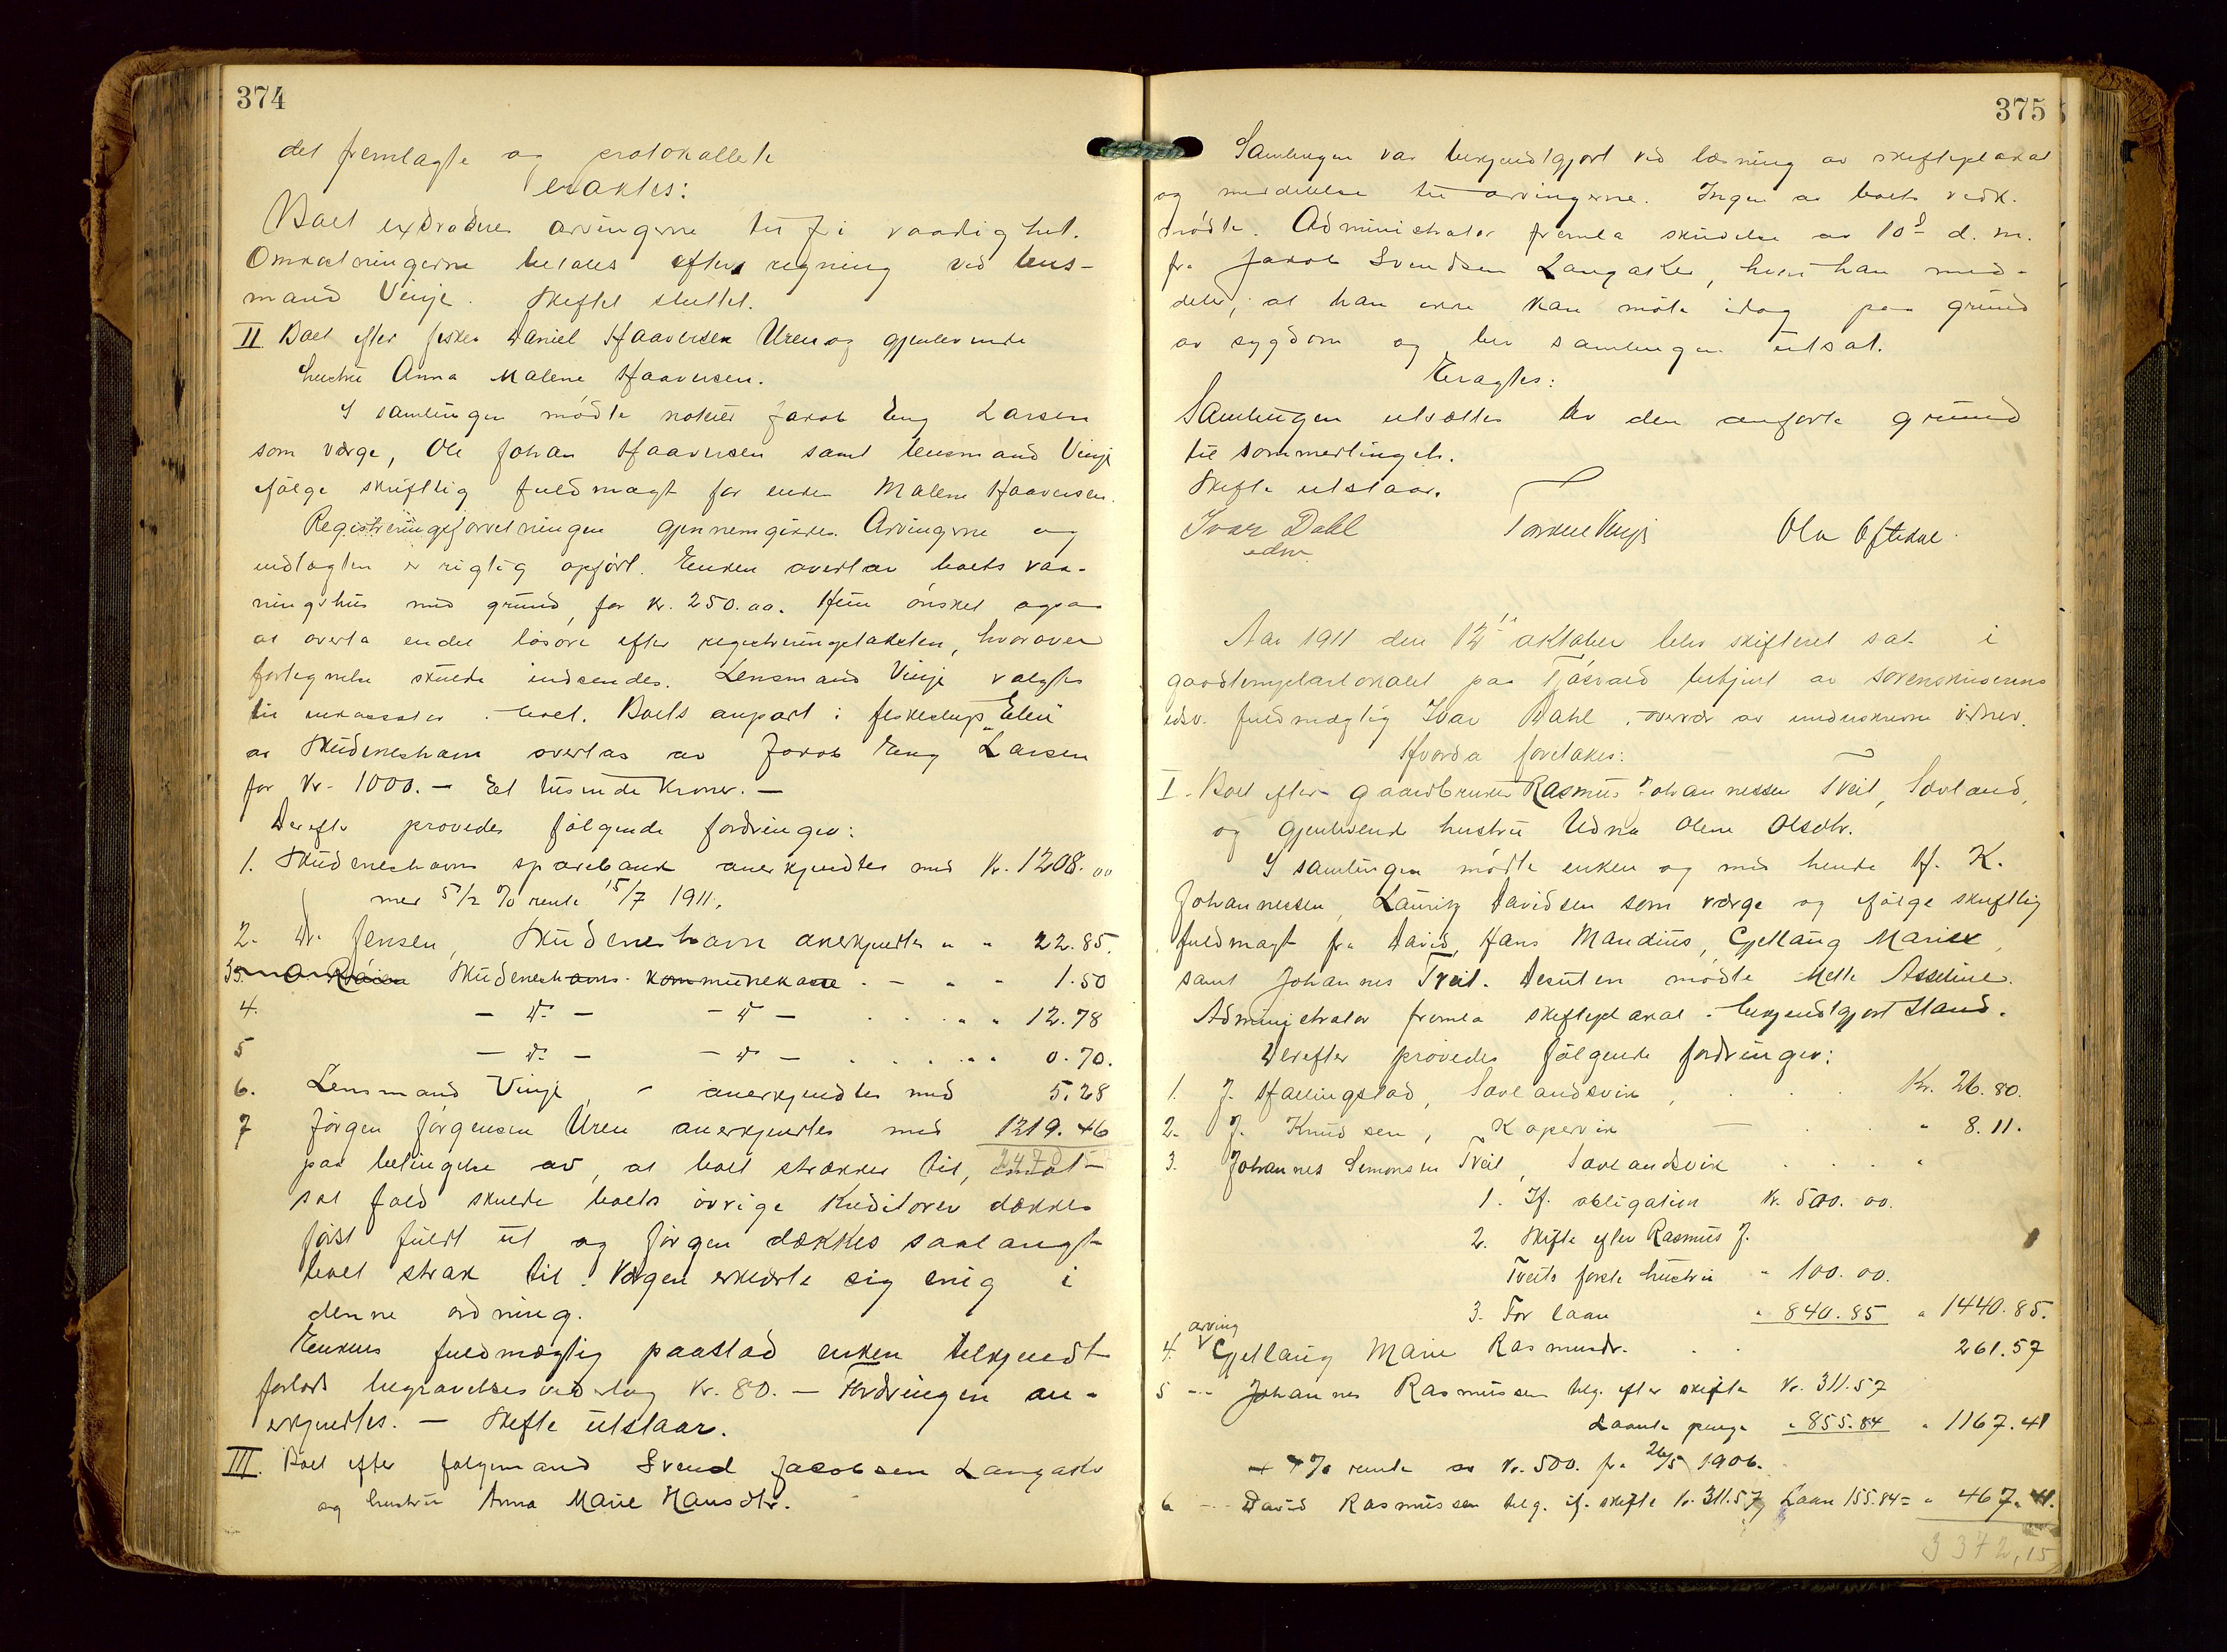 374
det fremlagte og protokollerte
eragtes:
Boet extraderes arvingerne til fri raadighet.
Omkostningerne betales efter regning ved lens-
mand Vinje. Skiftet sluttet.
II. Boet efter fisker Daniel Haaversen Uren og gjenlevende
hustru Anna Malene Haaversen.
I samlingen mødte Jakob Eng Larsen
som værge, Ole Johan Haaversen samt lensmand Vinje
ifølge skriftlig fuldmagt for enken Malene Haaversen.
Registreringsforretningen gjennemgikkes. Arvingerne og
er rigtig opført. Enken overtar boets vaa-
ningshus med grund for kr. 250.00. Hun ønsket ogsaa
at overta endel løsøre efter registreringstaksten, hvorover
fortegnelse skulde indsendes. Lensmand Vinje valgtes
til inkassator i boet. Boets anpart i fiskeslup "Elen"
av Skudeneshavn overtas av Jakob Eng Larsen
for Kr. 1000.— Et tusinde kroner.—
Derefter prøvedes følgende fordringer:
1. Skudeneshavns sparebank anerkjendtes med Kr. 1208.00
mer 5½ % rente 15/7 1911.
2. Dr. Jensen, Skudeneshavn anerkjendtes " " 22.85.
3. Skudeneshavns kommunekasse . - " " 1.50
4. - D. - - D - . . . . " " 12.78
5 - D. - - D - . . . . " " 0.70.
6. Lensmand Vinje, - anerkjendtes med 5.28
7 Jørgen Jørgensen Uren anerkjendtes med 1219.46
2470
paa betingelse av, at boet strækker til, i mot-
sat fald skulde boets øvrige kreditorer dækkes
først fuldt ut og Jørgen dækkes saalangt
boet strak til. Værgen erklærte sig enig i
denne ordning.
Enkens fuldmægtig paastod enken tilkjendt
forlods begravelsesvederlag Kr. 80.— Fordringen an-
erkjendtes. — Skifte utstaar.
III. Boet efter følgemand Svend Jacobsen Langaker
og hustru Anna Marie Hansdtr.
375
Samlingen var bekjendtgjort ved læsning av skifteplakat
og meddelelse til arvingerne. Ingen av boets vedk.
mødte. Administrator fremla skrivelse av 10de d. m.
fra Jakob Svendsen Langaker, hvori han med-
deler, at han ikke kan møte idag paa grund
av sygdom og ber samlingen utsat.
Eragtes:
Samlingen utsættes av den anførte grund
til sommertinget.
Skifte utstaar.
Ivar Dahl Torkell Vinje Ola Oftedal.
edsv
Aar 1911 den 12te oktober blev skifteret sat i
goodtemplarlokalet paa Tjøsvold betjent av sorenskriverens
edsv. fuldmægtig Ivar Dahl i overvær av underskrevne vidner.
Hvorda foretakes:
I. Boet efter gaardbruker Rasmus Johannessen Tveit, Sævland,
og gjenlevende hustru Udna Olene Olsdtr.
I samlingen mødte enken og med hende H. K.
Johannessen, Lauritz Davidsen som værge og ifølge skriftlig
fuldmagt fra David, Hans Mandius, Gjellaug Marie,
samt Johannes Tveit. Desuten mødte Mette Asseline.
Administrator fremla skifteplakat i bekjendtgjort stand.
Derefter prøvedes følgende fordringer:
1. J. Hallingstad, Sævlandsvik, . . . Kr. 26.80.
2. J. Knudsen, Kopervik . . " 8.11.
3. Johannes Simonsen Tveit, Sævlandsvik . . . . "
1. If. obligation Kr. 500.00.
2. Skifte efter Rasmus J.
Tveits første hustru " 100.00.
3. For laan " 840.85 " 1440.85.
arving
4. Gjellaug Marie Rasmusdtr. . . 261.57
5 -- Johannes Rasmussen tilg. efter skifte Kr. 311.57
Laante penge " 855.84 " 1167.41
+ 4% rente av Kr. 500. fra 26/5 1906.
6 --- David Rasmussen tilg. if. skifte kr. 311.57 Laan 155.84 = " 467.41.
3 372,15